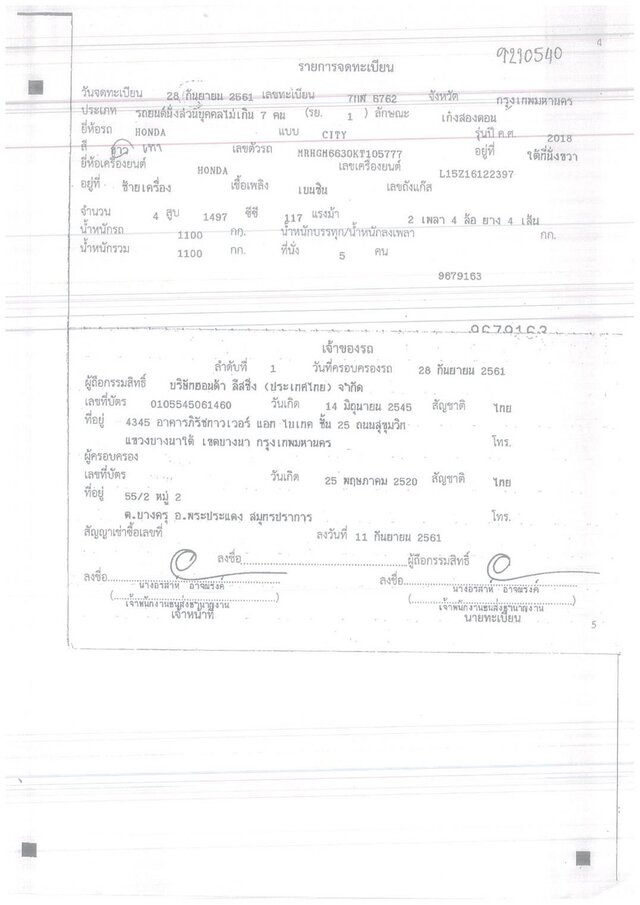 9290540
4
รายการจดทะเบียน
วันจดทะเบียน 28 กันยายน 2561 เลขทะเบียน 7กฬ 6762 จังหวัด กรุงเทพมหานคร
ประเภท รถยนต์นั่งส่วนบุคคลไม่เกิน 7 คน (รย. 1 ) ลักษณะ เก๋งสองตอน
ยี่ห้อรถ HONDA แบบ CITY รุ่นปี ค.ศ. 2018
สี ขาว เทา เลขตัวรถ MRHGM6630KT105777 อยู่ที่ ใต้ที่นั่งขวา
ยี่ห้อเครื่องยนต์ HONDA เลขเครื่องยนต์ L15Z16122397
อยู่ที่ ซ้ายเครื่อง เชื้อเพลิง เบนซิน เลขถังแก๊ส
จำนวน 4 สูบ 1497 ซีซี 117 แรงม้า 2 เพลา 4 ล้อ ยาง 4 เส้น
น้ำหนักรถ 1100 กก. น้ำหนักบรรทุก/น้ำหนักลงเพลา กก.
น้ำหนักรวม 1100 กก. ที่นั่ง 5 คน
9679163
9679163
เจ้าของรถ
ลำดับที่ 1 วันที่ครอบครองรถ 28 กันยายน 2561
ผู้ถือกรรมสิทธิ์ บริษัทฮอนด้า ลีสซิ่ง (ประเทศไทย) จำกัด
เลขที่บัตร 0105545061460 วันเกิด 14 มิถุนายน 2545 สัญชาติ ไทย
ที่อยู่ 4345 อาคารภิรัชทาวเวอร์ แอท ไบเทค ชั้น 25 ถนนสุขุมวิท
แขวงบางนาใต้ เขตบางนา กรุงเทพมหานคร โทร.
ผู้ครอบครอง
เลขที่บัตร วันเกิด 25 พฤษภาคม 2520 สัญชาติ ไทย
ที่อยู่ 55/2 หมู่ 2
ต.บางครุ อ.พระประแดง สมุทรปราการ โทร.
สัญญาเช่าซื้อเลขที่ ลงวันที่ 11 กันยายน 2561
ลงชื่อ ผู้ถือกรรมสิทธิ์
ลงชื่อ ลงชื่อ
เจ้าพนักงานขนส่งชำนาญงาน เจ้าพนักงานขนส่งชำนาญงาน
เจ้าหน้าที่ นายทะเบียน
5